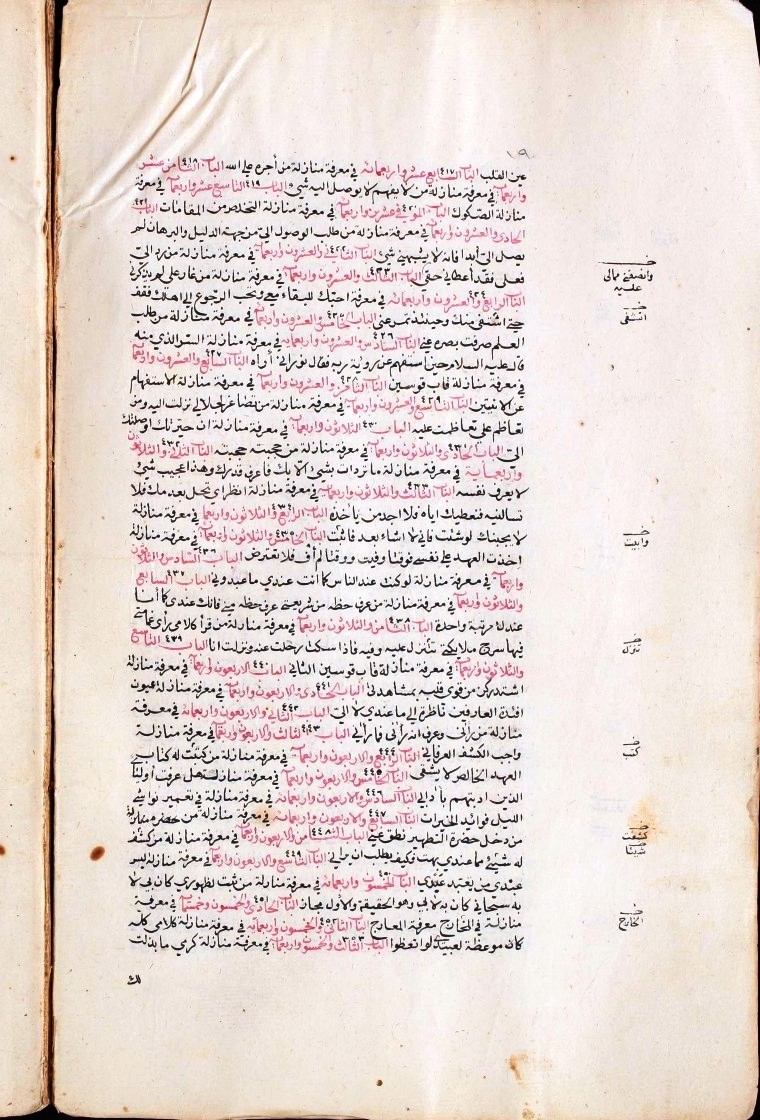 ١٩
عين القلب الباب ٤١٧ السابع عشر واربعمائة في معرفة منازلة من أجره على الله الباب ٤١٨ الثامن عشر
واربعمائة في معرفة منازلة من لا يفهم لا يوصل اليه شيء الباب ٤١٩ التاسع عشر واربعمائة في معرفة
منازلة الصكوك الباب الموفى عشرين واربعمائة في معرفة منازلة التخلص من المقامات الباب ٤٢١
الحادى والعشرون واربعمائة في معرفة منازلة من طلب الوصول الى من جهة الدليل والبرهان لم
يصل الى أبدا فانه لا يشبهني شيء الباب ٤٢٢ الثاني والعشرون واربعمائة في معرفة منازلة من رد الى
فعلى فقد أعطاني حقى الباب ٤٢٣ الثالث والعشرون واربعمائة في معرفة منازلة من غار على لم يذكرني
الباب ٤٢٤ الرابع والعشرون واربعمائة في معرفة منازلة احبك للبقاء معي وتحب الرجوع الى اهلك فقف
حتى اشتفى منك وحينئذ تمر عني الباب ٤٢٥ الخامس والعشرون واربعمائة في معرفة منازلة من طلب
العلم صرفت بصره عني الباب ٤٢٦ السادس والعشرون واربعمائة في معرفة منازلة السر الذي منه
قال عليه السلام حين استفهم عن رؤية ربه فقال نوراني أراه الباب ٤٢٧ السابع والعشرون واربعمائة
في معرفة منازلة قاب قوسين الباب ٤٢٨ الثامن والعشرون واربعمائة في معرفة منازلة الاستفهام
عن الانيتين الباب ٤٢٩ التاسع والعشرون واربعمائة في معرفة منازلة من تصاغر لجلالي نزلت اليه ومن
تعاظم على تعاظمت عليه الباب ٤٣٠ الثلاثون واربعمائة في معرفة منازلة ان حيرتك اوصلتك
الى الباب ٤٣١ الحادى والثلاثون واربعمائة في معرفة منازلة من حجبته حجبته الباب ٤٣٢ الثاني والثلاثون
واربعمائة في معرفة منازلة ما تردات بشيء الا بك فاعرف قدرك وهذا عجيب شيء
لا يعرف نفسه الباب ٤٣٣ الثالث والثلاثون واربعمائة في معرفة منازلة انظر اي تجل يعدمك فلا
تسألنيه فنعطيك اياه فلا اجد من يأخذه الباب ٤٣٤ الرابع والثلاثون واربعمائة في معرفة منازلة
لا يحجبنك لو شئت فاني لا اشاء بعد فاثبت الباب ٤٣٥ الخامس والثلاثون واربعمائة في معرفة منازلة
اخذت العهد على نفسي فوقتا وفيت ووقتا لم أف فلا تعترض الباب ٤٣٦ السادس والثلاثون
واربعمائة في معرفة منازلة لو كنت عند الناس كما أنت عندي ما عبدوني الباب ٤٣٧ السابع
والثلاثون واربعمائة في معرفة منازلة من عرف حظه من شريعتي عرف حظه مني فانك عندي كما أنا
عندك مرتبة واحدة الباب ٤٣٨ الثامن والثلاثون واربعمائة في معرفة منازلة من قرأ كلامي رأى غمامتي
فيها سرج ملائكتي تتنزل عليه وفيه فاذا سكت رحلت عنه ونزلت انا الباب ٤٣٩ التاسع
والثلاثون واربعمائة في معرفة منازلة قاب قوسين الثاني الباب ٤٤٠ الاربعون واربعمائة في معرفة منازلة
اشتد ركن من قوى قلبه بمشاهدتي الباب ٤٤١ الحادى والاربعون واربعمائة في معرفة منازلة عيون
افئدة العارفين ناظرة الى ما عندي لا الى الباب ٤٤٢ الثاني والاربعون واربعمائة في معرفة
منازلة من رآني وعرف انه رآني فما رآني الباب ٤٤٣ الثالث والاربعون واربعمائة في معرفة منازلة
واجب الكشف العرفاني الباب ٤٤٤ الرابع والاربعون واربعمائة في معرفة منازلة من كتبت له كتاب
العهد الخالص لا يشقى الباب ٤٤٥ الخامس والاربعون واربعمائة في معرفة منازلة هل عرفت أوليائي
الذين ادبتهم بآدابي الباب ٤٤٦ السادس والاربعون واربعمائة في معرفة منازلة في تعمير نواشئ
الليل فوائد الخيرات الباب ٤٤٧ السابع والاربعون واربعمائة في معرفة منازلة من
من دخل حضرة التطهير نطق عني الباب ٤٤٨ الثامن والاربعون واربعمائة في معرفة منازلة من كشفت
له شيئا مما عندي بهت فكيف يطلب ان يراني الباب ٤٤٩ التاسع والاربعون واربعمائة في معرفة منازلة ليس
عبدي من يعتبد عبدي الباب ٤٥٠ الخمسون واربعمائة في معرفة منازلة من ثبت لظهوري كان بي لا
به سبحاني كان به لا بي وهو الحقيقة والاول مجاز الباب ٤٥١ الحادى والخمسون واربعمائة في معرفة
منازلة في المخارج معرفة المعارج الباب ٤٥٢ الثاني والخمسون واربعمائة في معرفة منازلة كلامي كله
كان موعظة لعبيدي لو اتعظوا الباب ٤٥٣ الثالث والخمسون واربعمائة في معرفة منازلة كرمي ما بذلت
لك
وانصفني مالي
عليه
اشتفى
وابيت
نزله
كتب
كشفت
شيئا
المخارج